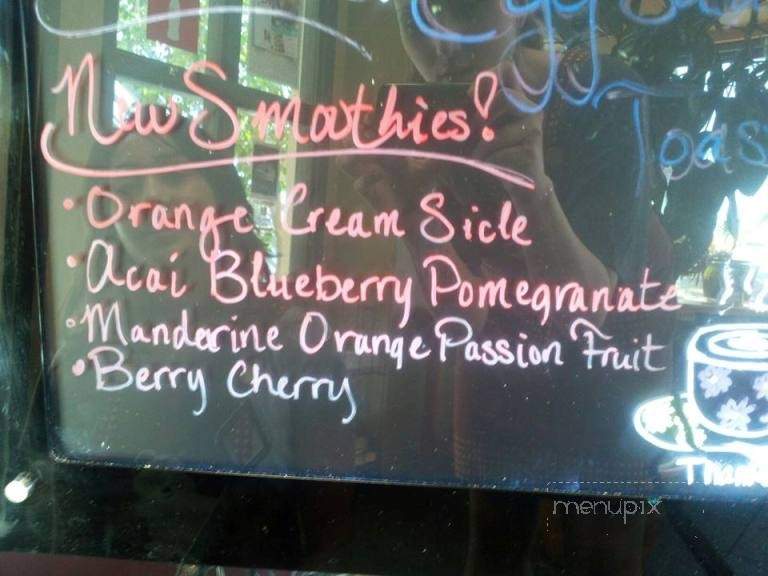 Egg
Toas
New Smoothies!
• Orange Cream Sicle
• Acai Blueberry Pomegranate
• Manderine Orange Passion Fruit
• Berry Cherry
Than
menupix